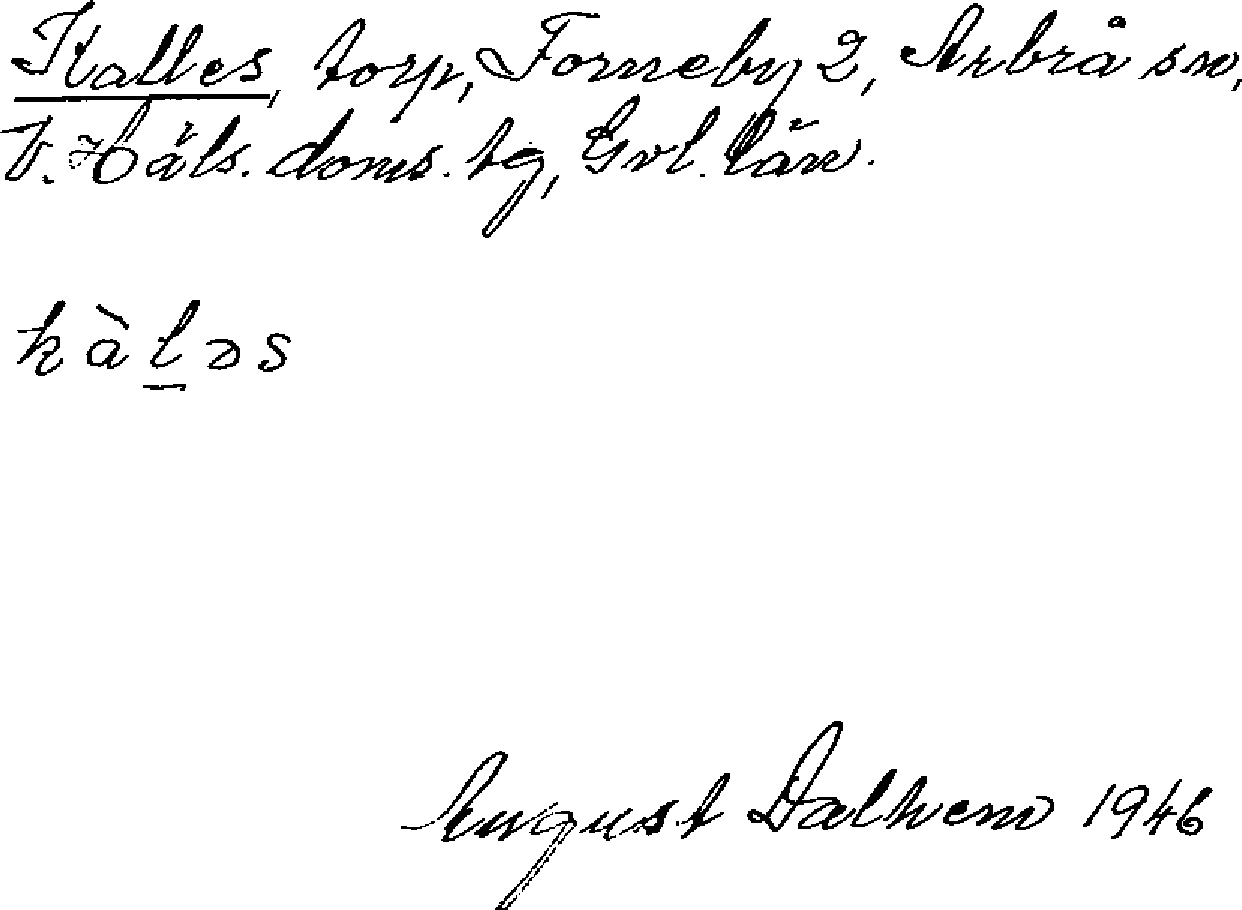 Kalles, torp, Forneby 2, Arbrå sn,
V. Häls. doms. tg, Gvl. län.
kàl̠əs
August Dalhem 1946